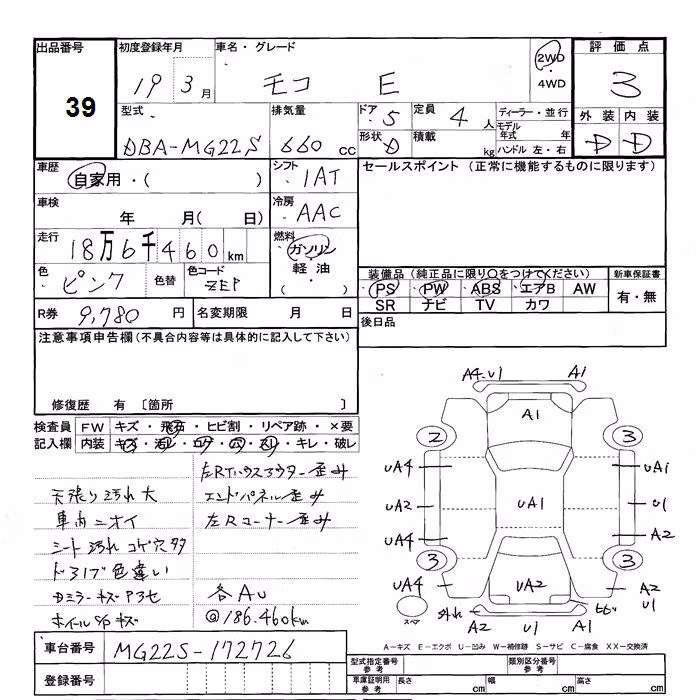 出品番号 初度登録年月 車名・グレード 評価点
39 19 3月 モコ E 2WD・4WD 3
型式 排気量 ドア 5 定員 4人 ディーラー・並行 外装 内装
DBA-MG22S 660cc 形状 D 積載 kg モデル年式 年 ハンドル 左・右 D D
車歴 シフト セールスポイント (正常に機能するものに限ります)
自家用・( ) IAT
車検 冷房
年 月( 日) AAC
走行 燃料
18万6千460km ガソリン
色 色替 色コード 軽油
ピンク ZEP ・( )
装備品(純正品に限り○をつけてください) 新車保証書
PS PW ABS エアB AW 有・無
SR ナビ TV カワ
R券 9,780円 名変期限 月 日
後日品
注意事項申告欄(不具合内容等は具体的に記入して下さい)
修復歴 有 〔箇所 〕
検査員 FW キズ・飛石・ヒビ割・リペア跡・×要
記入欄 内装 キズ・汚レ・コゲ・穴・スレ・キレ・破レ
左Rインハウスアウター歪み
天張り汚れ大 エンドパネル歪み
車内ニオイ 左Rコーナー歪み
シート汚れ コゲ穴多
ドライブ色違い
Dミラーキズ Pヨゼ 各AU
ホイールS/Pキズ @186.460km
A4.U1 A1
A1
2 3
UA4 UA1
UA2 UA1 U1
UA4 A2
3 3
UA4 UA2 A2 U1
スペア 外れ ヒビ
A2 U1 A1
A-キズ E-エクボ U-凹み W-補修跡 S-サビ C-腐食 XX-交換済
車台番号 MG22S-172726
型式指定番号 参考 類別区分番号 参考
登録番号
車庫証明用 参考 長さ cm 幅 cm 高さ cm